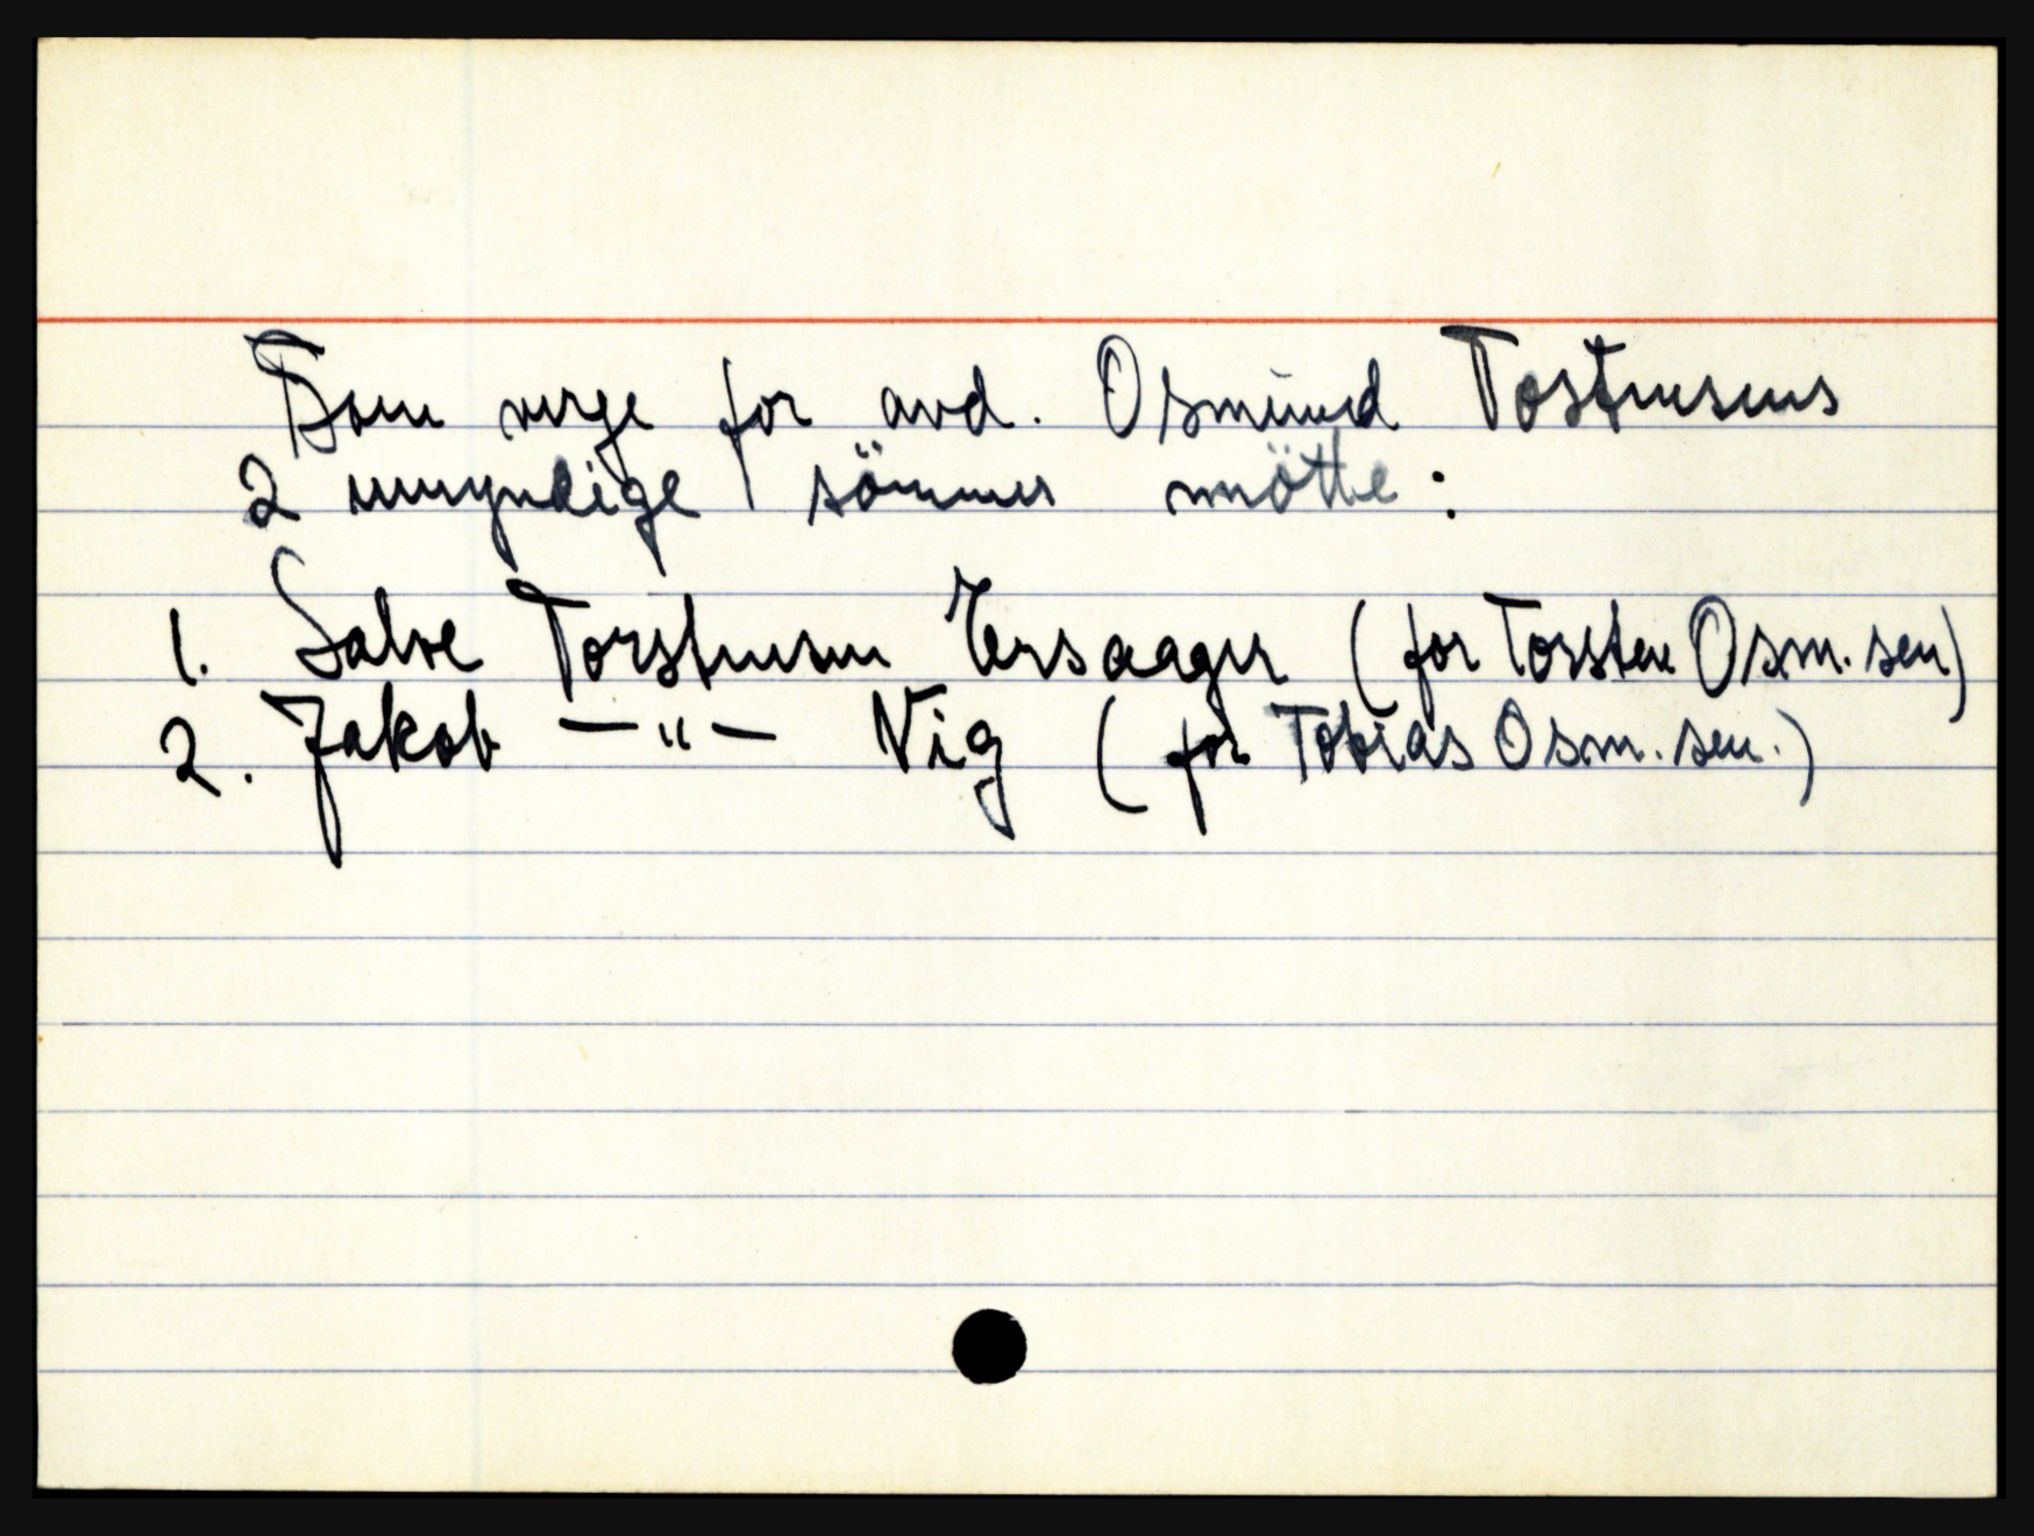 Som verge for avd. Osmund Tostensens
2 umyndige sönner mötte:
1. Salve Torstensen Ersaager (for Torsten Osm.sen)
2. Jakob —"— Vig (for Tobias Osm.sen.)